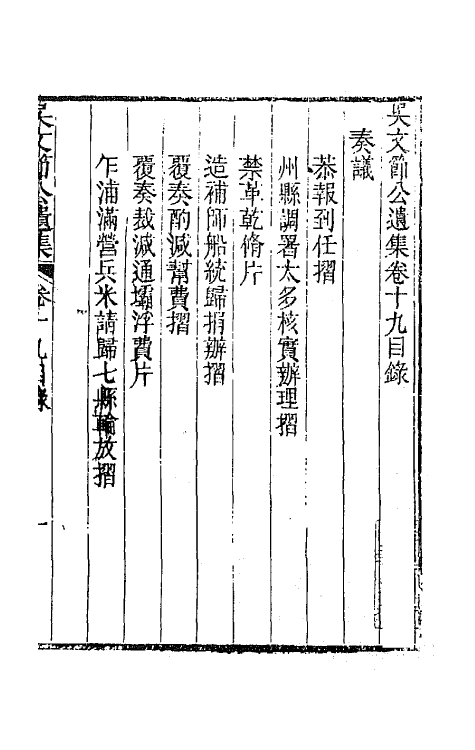 吳文節公遺集卷十九目錄
奏議
恭報到任摺
州縣調署太多核實辦理摺
禁革乾脩片
造補師船統歸捐辦摺
覆奏酌減幫費摺
覆奏裁減通壩浮費片
乍浦滿營兵米請歸七縣輪放摺
吳文節公遺集 卷十九目錄 一